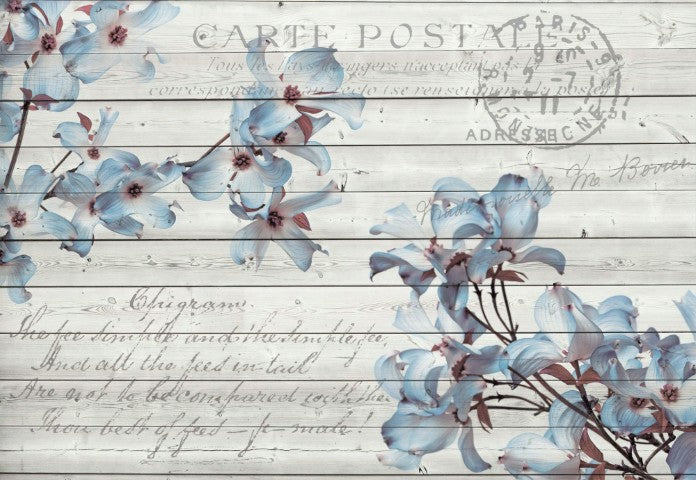 CARTE POSTALE
Tous les Pays étrangers n'acceptant pas la
correspondance au recto (se renseigner à la poste)
PARIS-9
9
2-7
11
ADRESSE
Mademoiselle M. Bovier
Epigram.
The fee simple and the simple fee,
And all the fees in tail
Are not to be compared with the
Thou best of fees - fe-male!